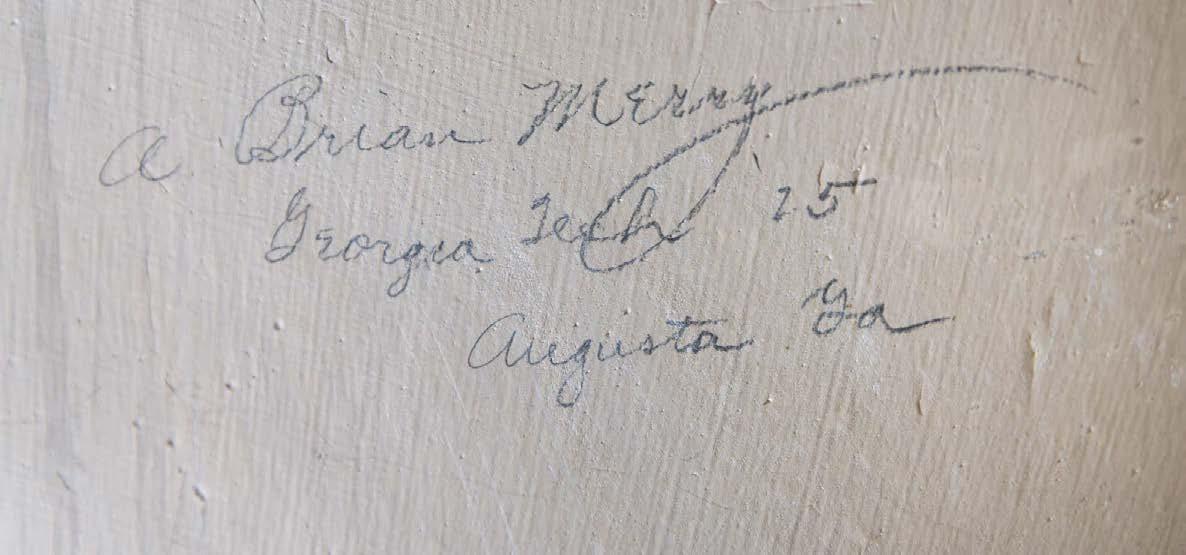 A Brian Merry
Georgia Tech 25
Augusta Ga